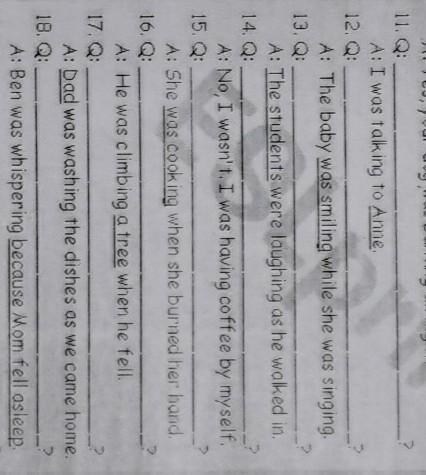 11. Q: ?
A: I was talking to Annie.
12. Q: ?
A: The baby was smiling while she was singing.
13. Q: ?
A: The students were laughing as he walked in.
14. Q: ?
A: No, I wasn't. I was having coffee by myself.
15. Q: ?
A: She was cooking when she burned her hand.
16. Q: ?
A: He was climbing a tree when he fell.
17. Q: ?
A: Dad was washing the dishes as we came home.
18. Q: ?
A: Ben was whispering because Mom fell asleep.